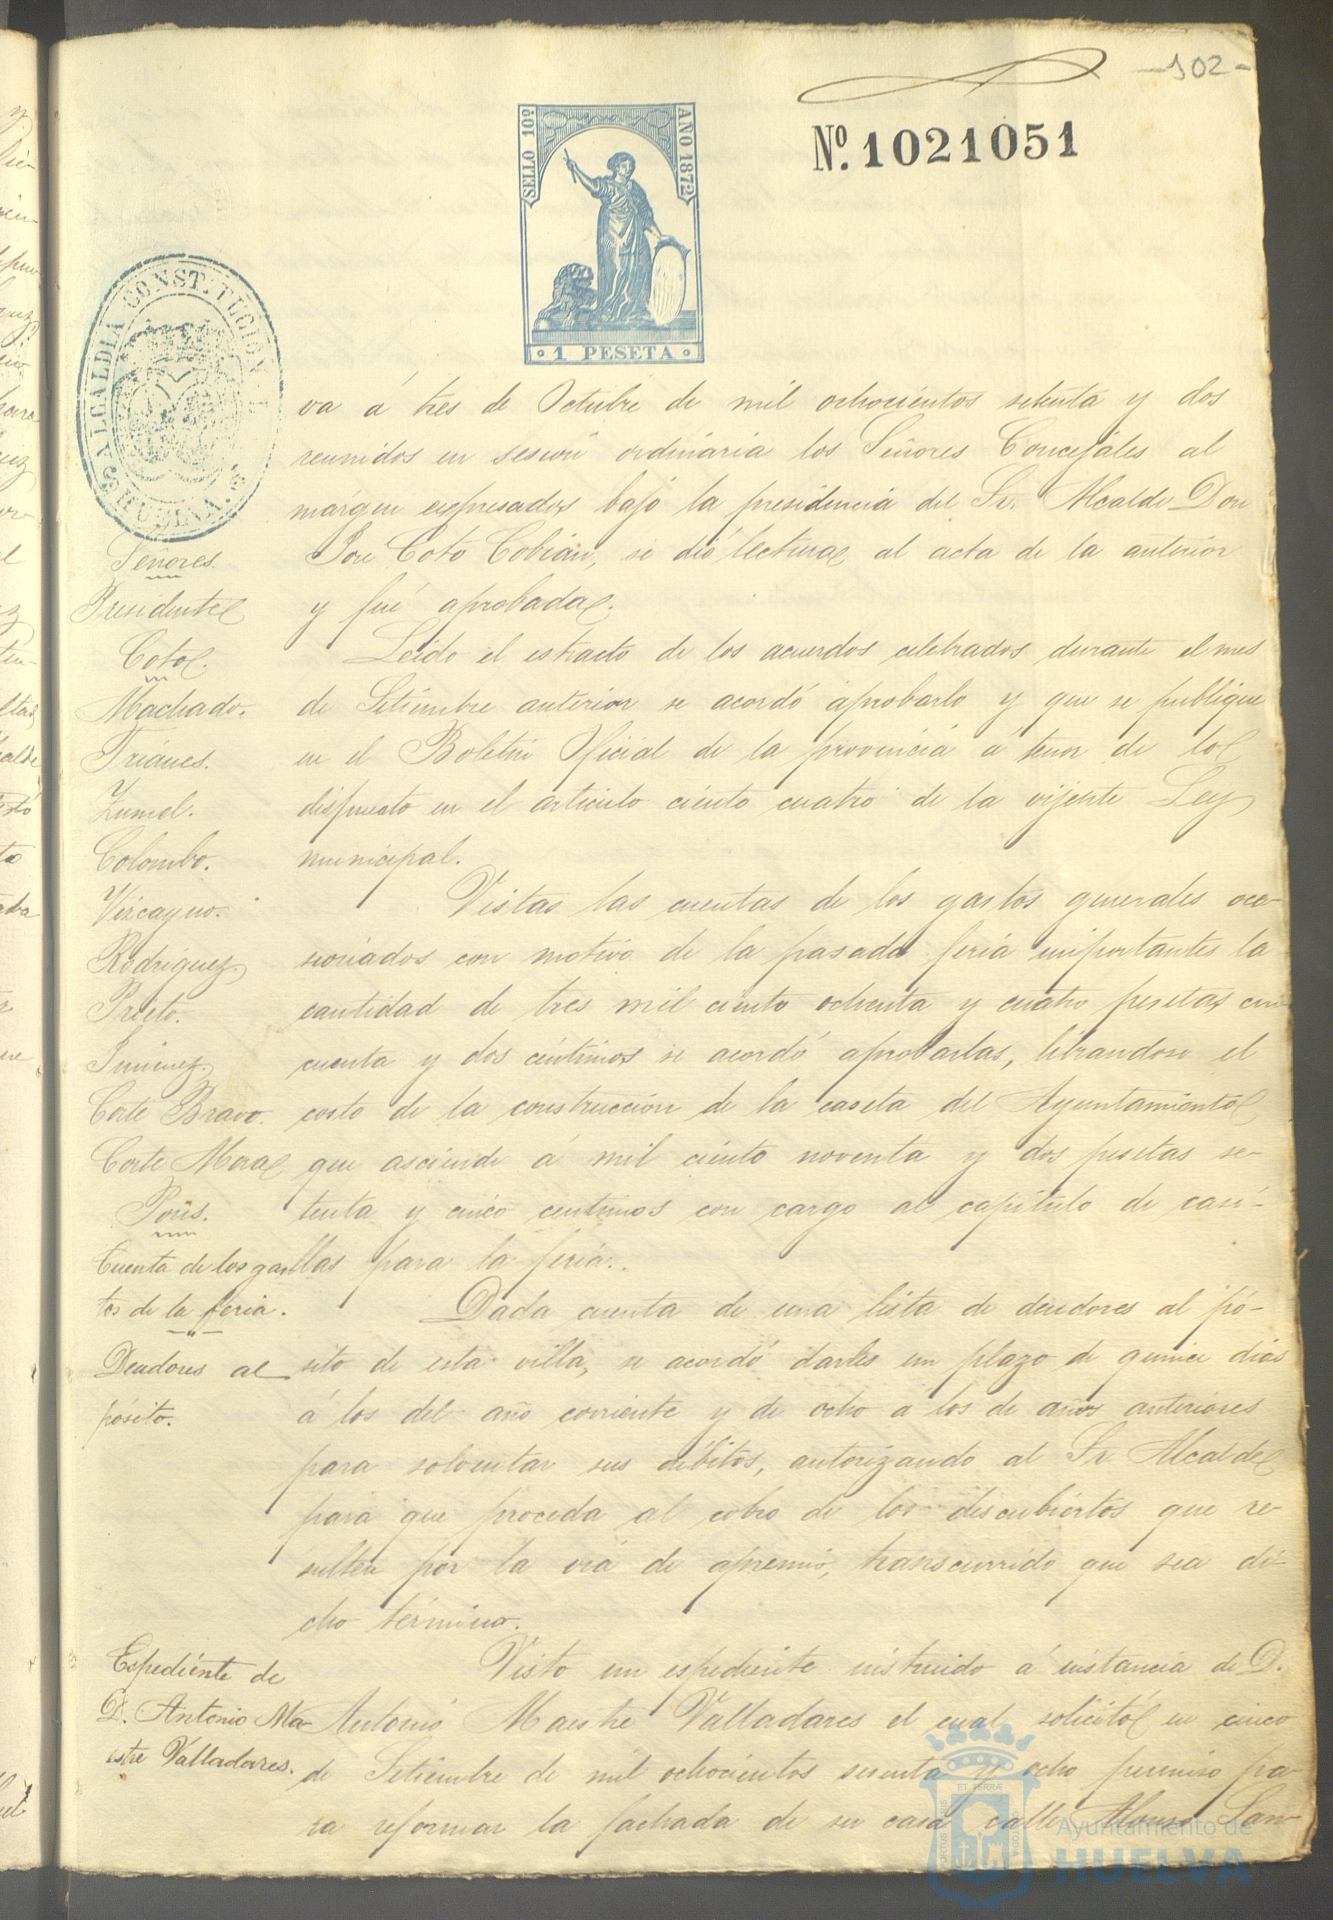 -102-
Nº. 1021051
SELLO 10º
AÑO 1872
1 PESETA
ALCALDIA CONSTITUCIONAL
HUELVA
va á tres de Octubre de mil ochocientos setenta y dos
reunidos en sesion ordinaria los Señores Concejales al
márgen espresados bajo la presidencia del Sr. Alcalde Don
José Coto Cobian, se dió lectura al acta de la anterior
y fué aprobada.
Señores.
Presidente
Coto.
Machado.
Trianes.
Zumel.
Colombo.
Vizcayno.
Rodriguez
Prieto.
Jimenez
Corte Bravo.
Corte Mora
Pons.
Leido el estracto de los acuerdos celebrados durante el mes
de Setiembre anterior se acordó aprobarlo y que se publique
en el Boletin Oficial de la provincia á tenor de lo
dispuesto en el articulo ciento cuatro de la vijente Ley
municipal.
Cuenta de los gas
tos de la feria.
Vistas las cuentas de los gastos generales oca-
sionados con motivo de la pasada feria importantes la
cantidad de tres mil ciento ochenta y cuatro pesetas cin
cuenta y dos céntimos se acordó aprobarlas, librandose el
costo de la construccion de la caseta del Ayuntamiento
que asciende á mil ciento noventa y dos pesetas se-
tenta y cinco centimos con cargo al capitulo de casi-
llas para la feria.
Deudores al
pósito.
Dada cuenta de una lista de deudores al pó-
sito de esta villa, se acordó darles un plazo de quince dias
á los del año corriente y de ocho á los de años anteriores
para solventar sus débitos, autorizando al Sr. Alcalde
para que proceda al cobro de los descubiertos que re-
sulten por la via de apremio, transcurrido que sea di-
cho término.
Espediente de
D. Antonio Ma-
estre Valladares.
Visto un espediente instruido á instancia de D.
Antonio Maestre Valladares el cual solicitó en cinco
de Setiembre de mil ochocientos sesenta y ocho permiso pa-
ra reformar la fachada de su casa calle Alonso San-
Ayuntamiento de
HUELVA